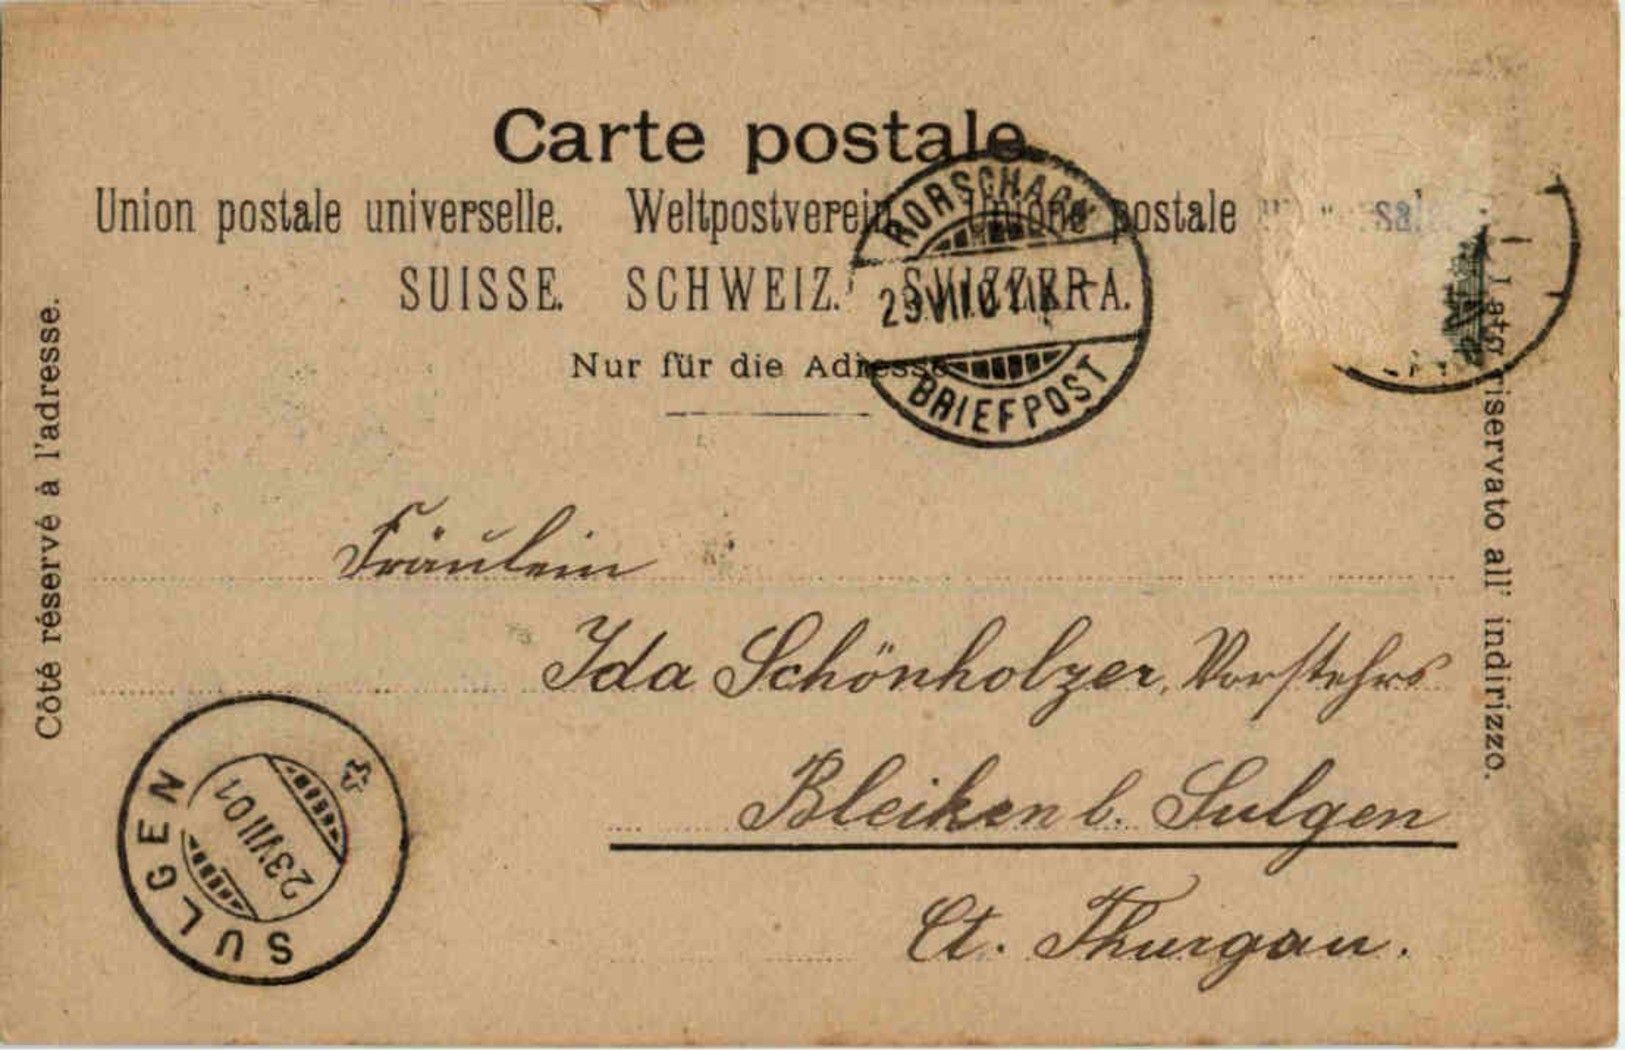 Carte postale
Union postale universelle. Weltpostverein. Unione postale
SUISSE. SCHWEIZ. SVIZZERA.
Nur für die Adresse
Côté réservé à l'adresse.
Lato riservato all' indirizzo.
RORSCHACH
BRIEFPOST
Fräulein
Ida Schönholzer, Vorstehrs
Bleiken b. Sulgen
Ct. Thurgau.
SULGEN
23 VII 01